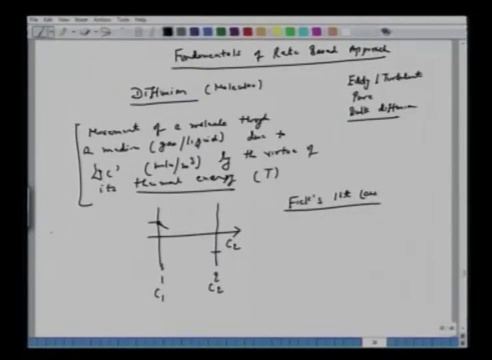 File Edit View Insert Actions Tools Help
Fundamentals of Rate Based Approach
Diffusion (Molecular)
Eddy / Turbulent
Pore
Bulk diffusion
Movement of a molecule through
a medium (gas/liquid) due to
ΔC' (mole/m³) by the virtue of
its thermal energy (T)
Fick's 1st Law
C2
1 2
C1 C2